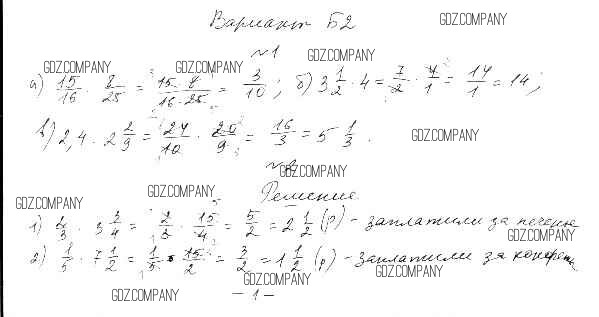 Вариант Б2 GDZ.COMPANY
№1 GDZ.COMPANY
GDZ.COMPANY GDZ.COMPANY
а) 15/16 · 8/25 = 15·8/16·25 = 3/10; б) 3 1/2 · 4 = 7/2 · 4/1 = 14/1 = 14;
в) 2,4 · 2 2/9 = 24/10 · 20/9 = 16/3 = 5 1/3. GDZ.COMPANY
№2 GDZ.COMPANY
GDZ.COMPANY GDZ.COMPANY Решение
1) 2/3 · 3 3/4 = 2/3 · 15/4 = 5/2 = 2 1/2 (р) - заплатили за печенье
GDZ.COMPANY
2) 1/5 · 7 1/2 = 1/5 · 15/2 = 3/2 = 1 1/2 (р) - заплатили за конфеты
GDZ.COMPANY GDZ.COMPANY
GDZ.COMPANY - 1 -